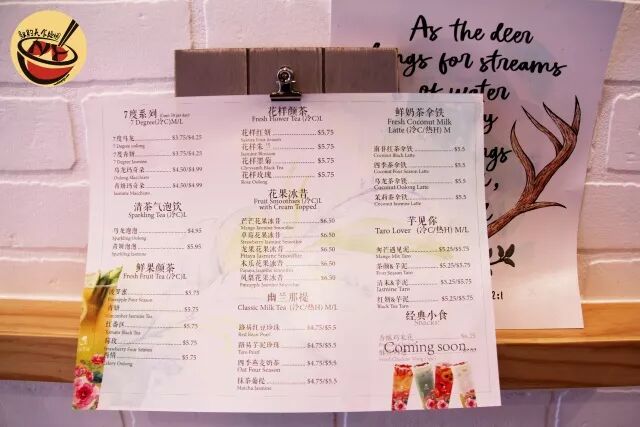 As the deer
longs for streams
of water
7度系列
7 Degree(冷C)M/L
7度乌龙 $3.75/$4.25
7 Degree oolong
7度青妍 $3.75/$4.25
7 Degree Jasmine
乌龙玛奇朵 $4.50/$4.99
Oolong Macchiato
青妍玛奇朵 $4.50/$4.99
Jasmine Macchiato
清茶气泡饮
Sparkling Tea (冷C)L
乌龙泡泡 $4.95
Sparkling Oolong
青妍泡泡 $5.95
Sparkling Jasmine
鲜果颜茶
Fresh Fruit Tea (冷C)L
$5.75
Pineapple Four Season
青妍 $5.75
Cucumber Jasmine Tea
红茶 $5.75
Tomato Black Tea
$5.75
Strawberry Four Season
$5.75
Celery Oolong
花样颜茶
Fresh Flower Tea (冷C)L
花样红妍 $5.75
花样朱兰 $5.75
花样墨菊 $5.75
花样玫瑰 $5.75
Rose Oolong
花果冰昔
Fruit Smoothies (冷C)L
with Cream Topped
芒芒花果冰昔 $6.50
Mango Jasmine Smoothie
草莓花果冰昔 $6.50
Strawberry Jasmine Smoothie
龙果花果冰昔 $6.50
Pitaya Jasmine Smoothie
木乐花果冰昔 $6.50
凤梨花果冰昔 $6.50
Pineapple Jasmine Smoothie
幽兰那提
Classic Milk Tea (冷C/热H) M/L
路易红豆珍珠 $4.75/$5.5
Red Bean Pearl
路易芋泥珍珠 $4.75/$5.5
Taro Pearl
四季燕麦奶茶 $4.75/$5.5
Oat Four Season
抹茶菊提 $4.75/$5.5
Matcha Jasmine
鲜奶茶拿铁
Fresh Coconut Milk
Latte (冷C/热H) M
南非红茶拿铁 $5.5
Coconut Black Latte
四季茶拿铁 $5.5
Coconut Four Season Latte
乌龙茶拿铁 $5.5
Coconut Oolong Latte
茉莉茶拿铁 $5.5
Coconut Jasmine Latte
芋见你
Taro Lover (冷C/热H) M/L
匆芒遇见泥 $5.25/$5.75
Mango Mit Taro
茶颜&芋泥 $5.25/$5.75
Four Season Taro
清末&芋泥 $3.25/$5.75
Jasmine Taro
红妍&芋泥 $5.25/$5.75
Black Tea Taro
经典小食
Snacks
$6.25
Coming soon...
2:1